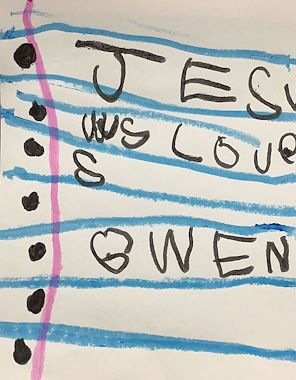 JESU
LOVE
S
GWEN